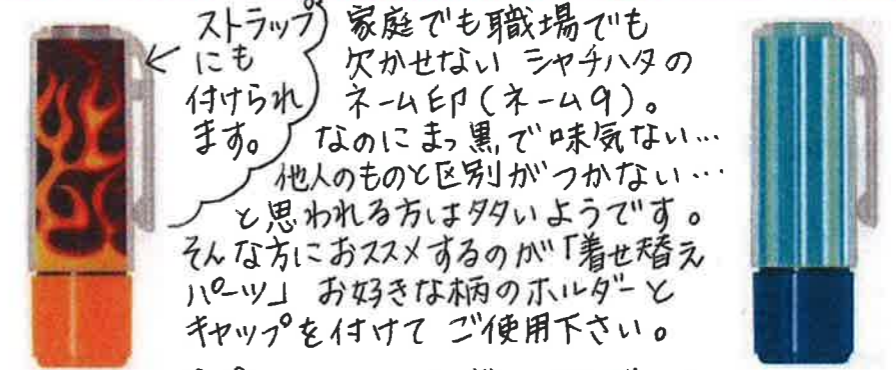 ストラップ
にも
付けられ
ます。
家庭でも職場でも
欠かせない シャチハタの
ネーム印(ネーム9)。
なのにまっ黒で味気ない…
他人のものと区別がつかない…
と思われる方は多いようです。
そんな方におススメするのが「着せ替え
パーツ」 お好きな柄のホルダーと
キャップを付けて ご使用下さい。